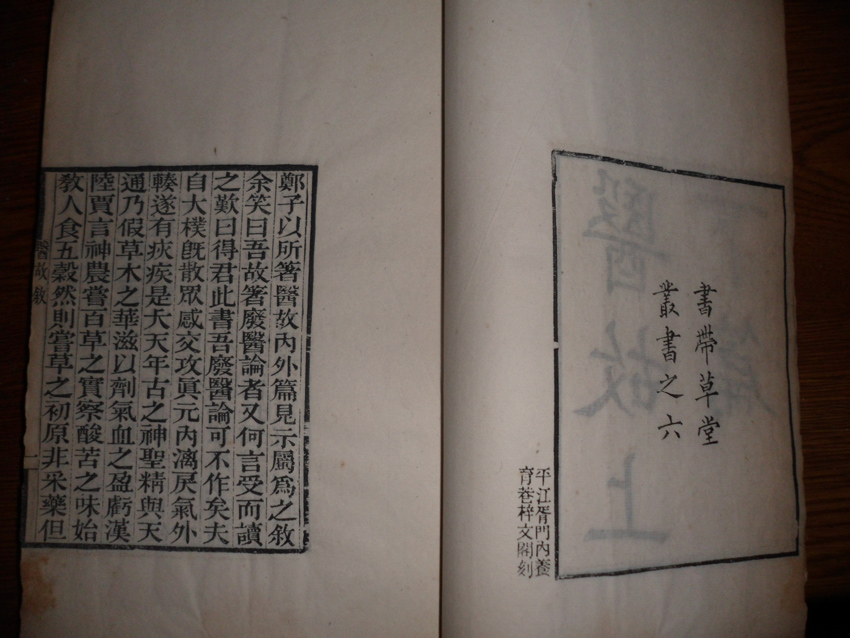 書帶草堂
叢書之六
平江胥門內養
育巷梓文閣刻
醫故上
下篇
鄭子以所箸醫故內外篇見示屬爲之敘
余笑曰吾故箸廢醫論者又何言受而讀
之歎曰得君此書吾廢醫論可不作矣夫
自大樸旣散眾感交攻眞元內漓戾氣外
轃遂有疢疾是夭天年古之神聖精與天
通乃假草木之華滋以劑氣血之盈虧漢
陸賈言神農嘗百草之實察酸苦之味始
敎人食五穀然則嘗草之初原非采藥但
醫故敘
一